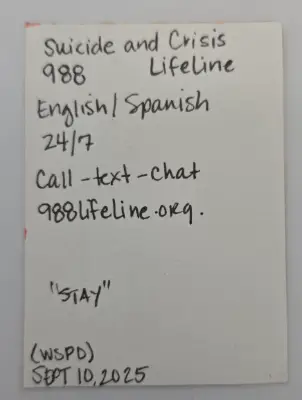 Suicide and Crisis
988 Lifeline
English/Spanish
24/7
Call-text-chat
988lifeline.org.
"STAY"
(WSPD)
SEPT 10, 2025